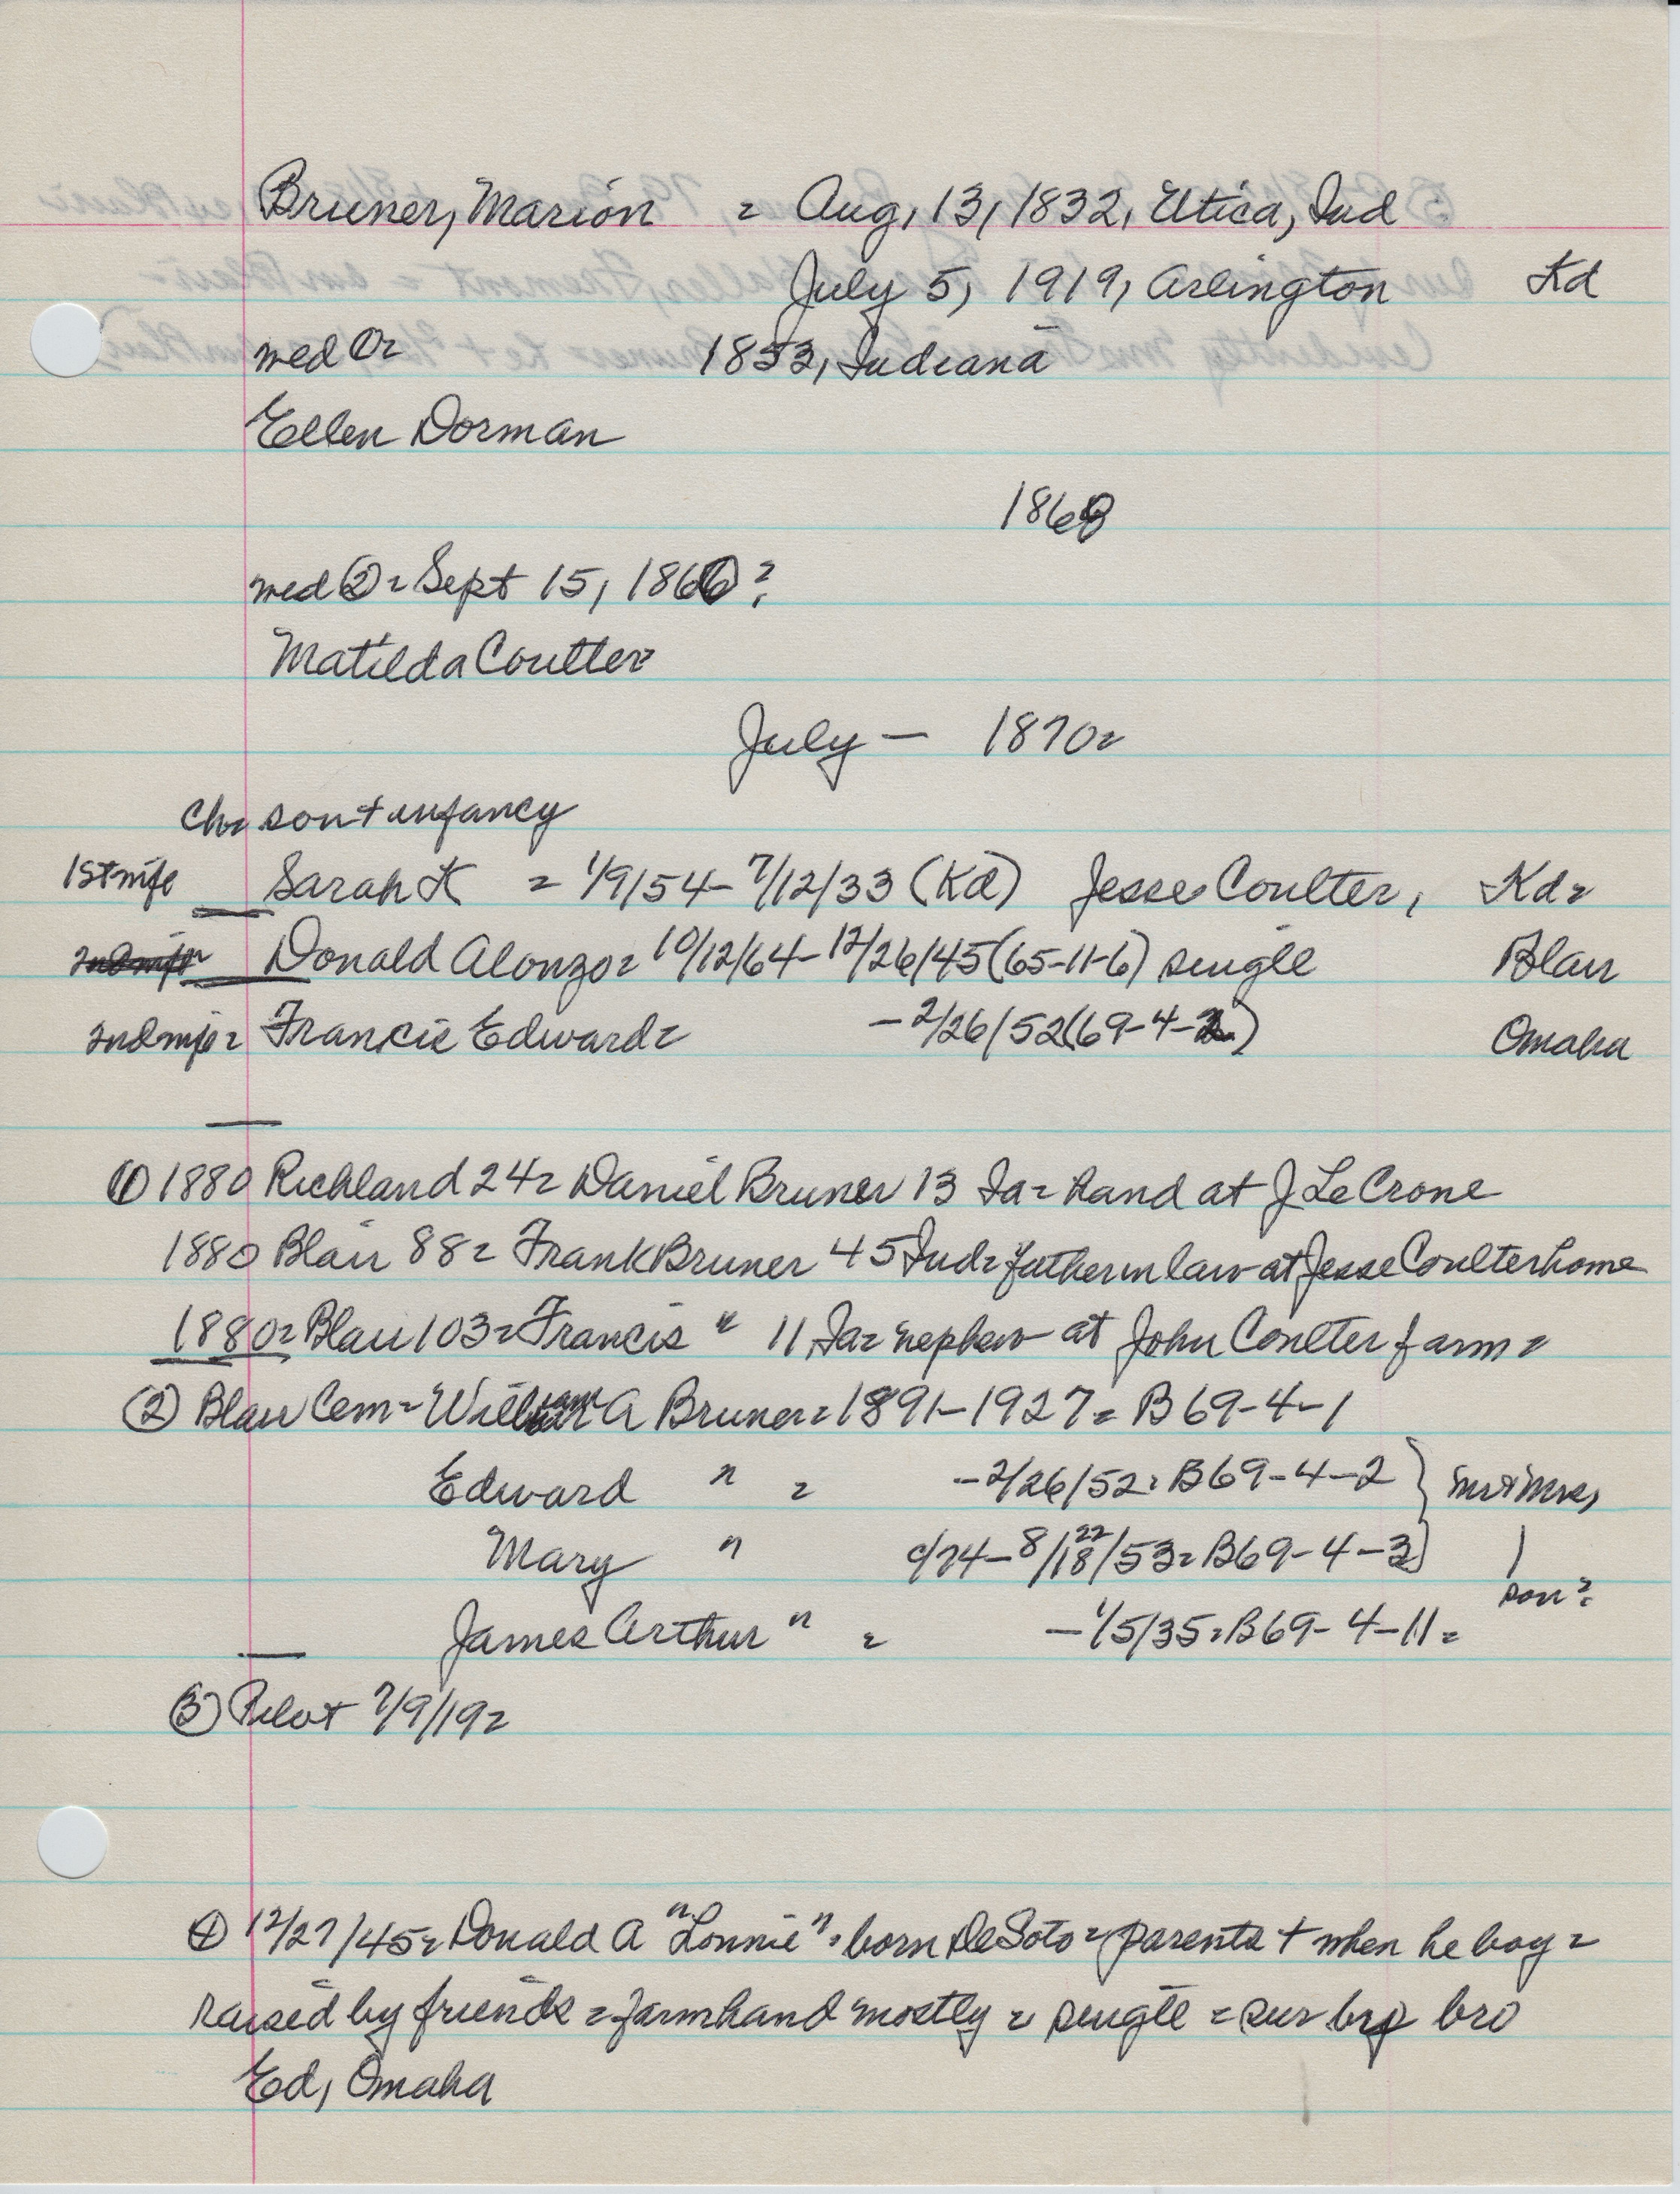 Bruner, Marion = Aug, 13, 1832, Utica, Ind
July 5, 1919, Arlington Kd
med ① = 1853, Indiana
Ellen Dorman
1868
med ② = Sept 15, 1866?
Matilda Coulter =
July — 1870 =
Ch = son + infancy
1st wife Sarah K = 1/9/54 - 7/12/33 (Kd) Jesse Coulter, Kd =
2nd wife Donald Alonzo = 10/12/64 - 12/26/45 (65-11-6) single Blair
2nd wife = Francis Edward = - 2/26/52 (69-4-2) Omaha
① 1880 Richland 24 = Daniel Bruner 13 Ia = hand at J LeCrone
1880 Blair 88 = Frank Bruner 45 Ind = father in law at Jesse Coulter home
1880 = Blair 103 = Francis " 11, Ia = nephew at John Coulter farm =
② Blair Cem = William A Bruner = 1891-1927 = B 69-4-1
Edward " = - 2/26/52 = B69-4-2 } mr & mrs,
Mary " c/74 - 8/18/53 = B69-4-3 22
son?
James Arthur " = - 1/5/35 = B69-4-11 =
③ Pilot 7/9/19 =
④ 12/27/45 = Donald A "Lonnie" = born DeSoto = parents + when he boy =
raised by friends = farmhand mostly = single = sur bro
Ed, Omaha